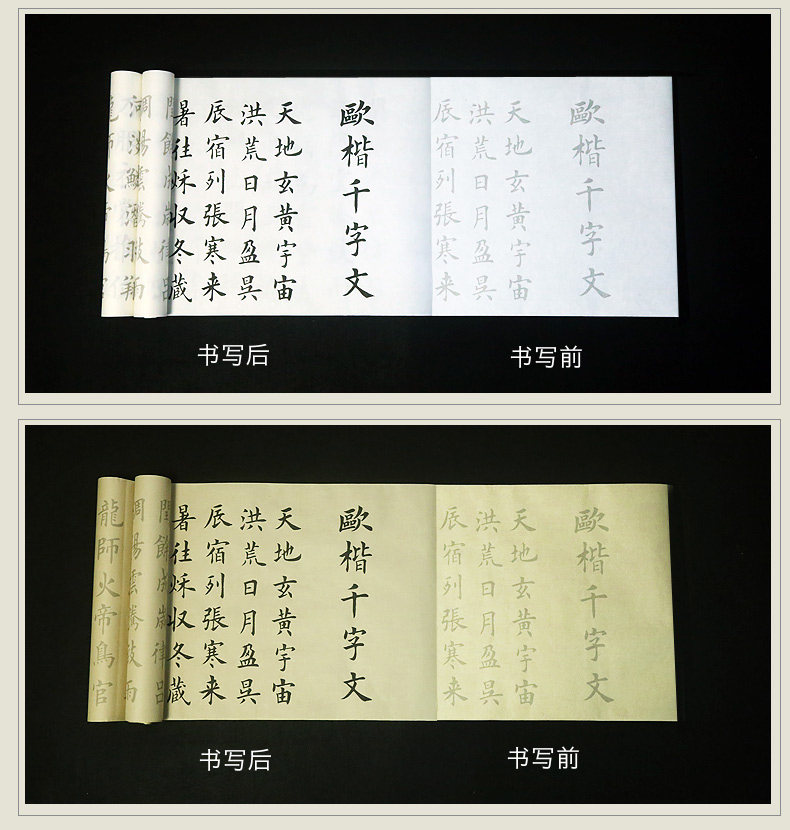 歐楷千字文
天地玄黄宇宙
洪荒日月盈昃
辰宿列張寒来
歐楷千字文
天地玄黄宇宙
洪荒日月盈昃
辰宿列張寒来
暑往秋収冬藏
书写后
书写前
歐楷千字文
天地玄黄宇宙
洪荒日月盈昃
辰宿列張寒来
歐楷千字文
天地玄黄宇宙
洪荒日月盈昃
辰宿列張寒来
暑往秋収冬藏
龍師火帝鳥官
书写后
书写前